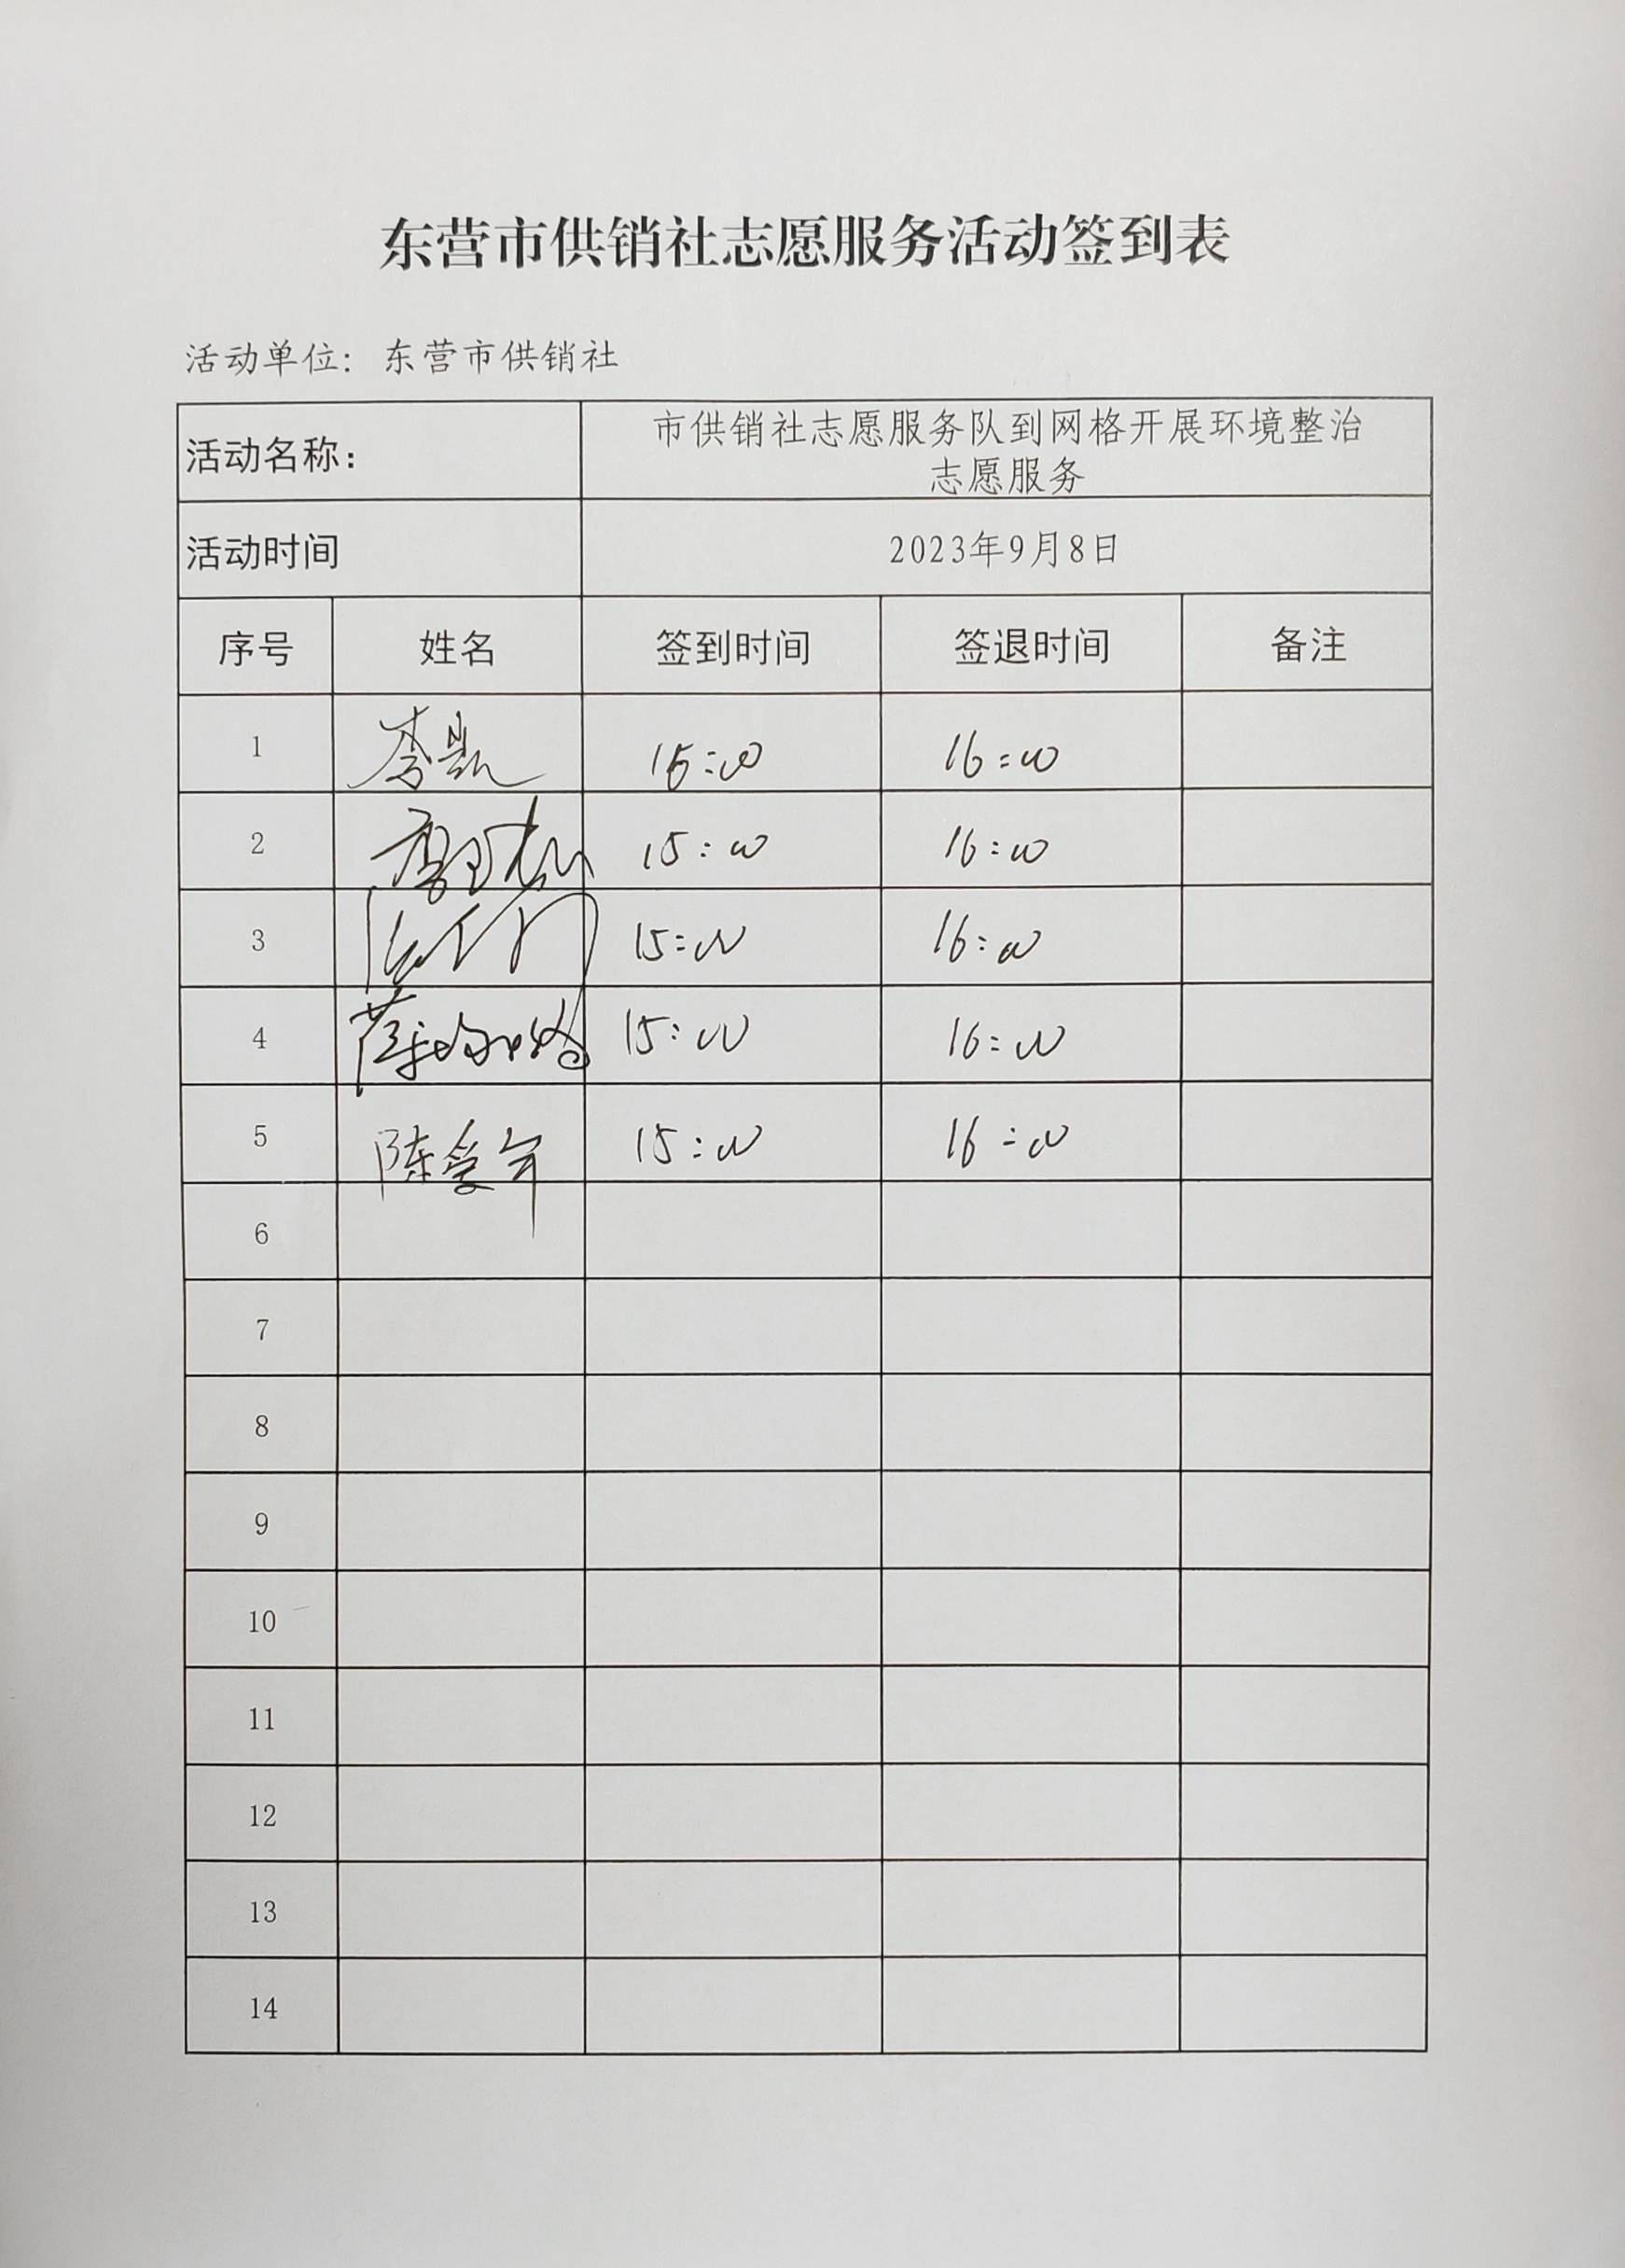 东营市供销社志愿服务活动签到表
活动单位：东营市供销社
活动名称： 市供销社志愿服务队到网格开展环境整治
志愿服务
活动时间 2023年9月8日
序号 姓名 签到时间 签退时间 备注
1 李凯 15:00 16:00
2 15:00 16:00
3 15:00 16:00
4 15:00 16:00
5 陈爱军 15:00 16:00
6
7
8
9
10
11
12
13
14